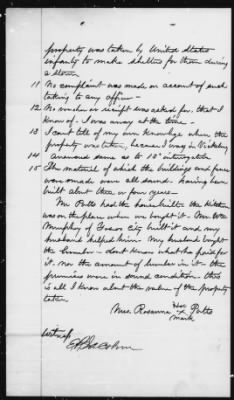 property was taken by United States
infantry to make shelter for them during
a storm
11 No complaint was made on account of such
taking to any officer —
12 No voucher or receipt was asked for, that I
know of. I was away at the time —
13 I cant tell of my own knowledge when the
property was taken, because I was in Vicksburg
14 Answered same as to 13" interrogatory
15 The material of which the buildings and fences
were made were all sound having been
built about three or four years —
Mr Potts had the house built — the kitchen
was on the place when we bought it. Mr Wm
Murphey of Town City built it and my
husband helped him. My husband bought
the lumber — dont know what he paid for
it. nor the amount of lumber in it — the
premises were in sound condition — this
is all I know about the value of the property
taken.
Mrs. Rosanna her x mark Potts
witness